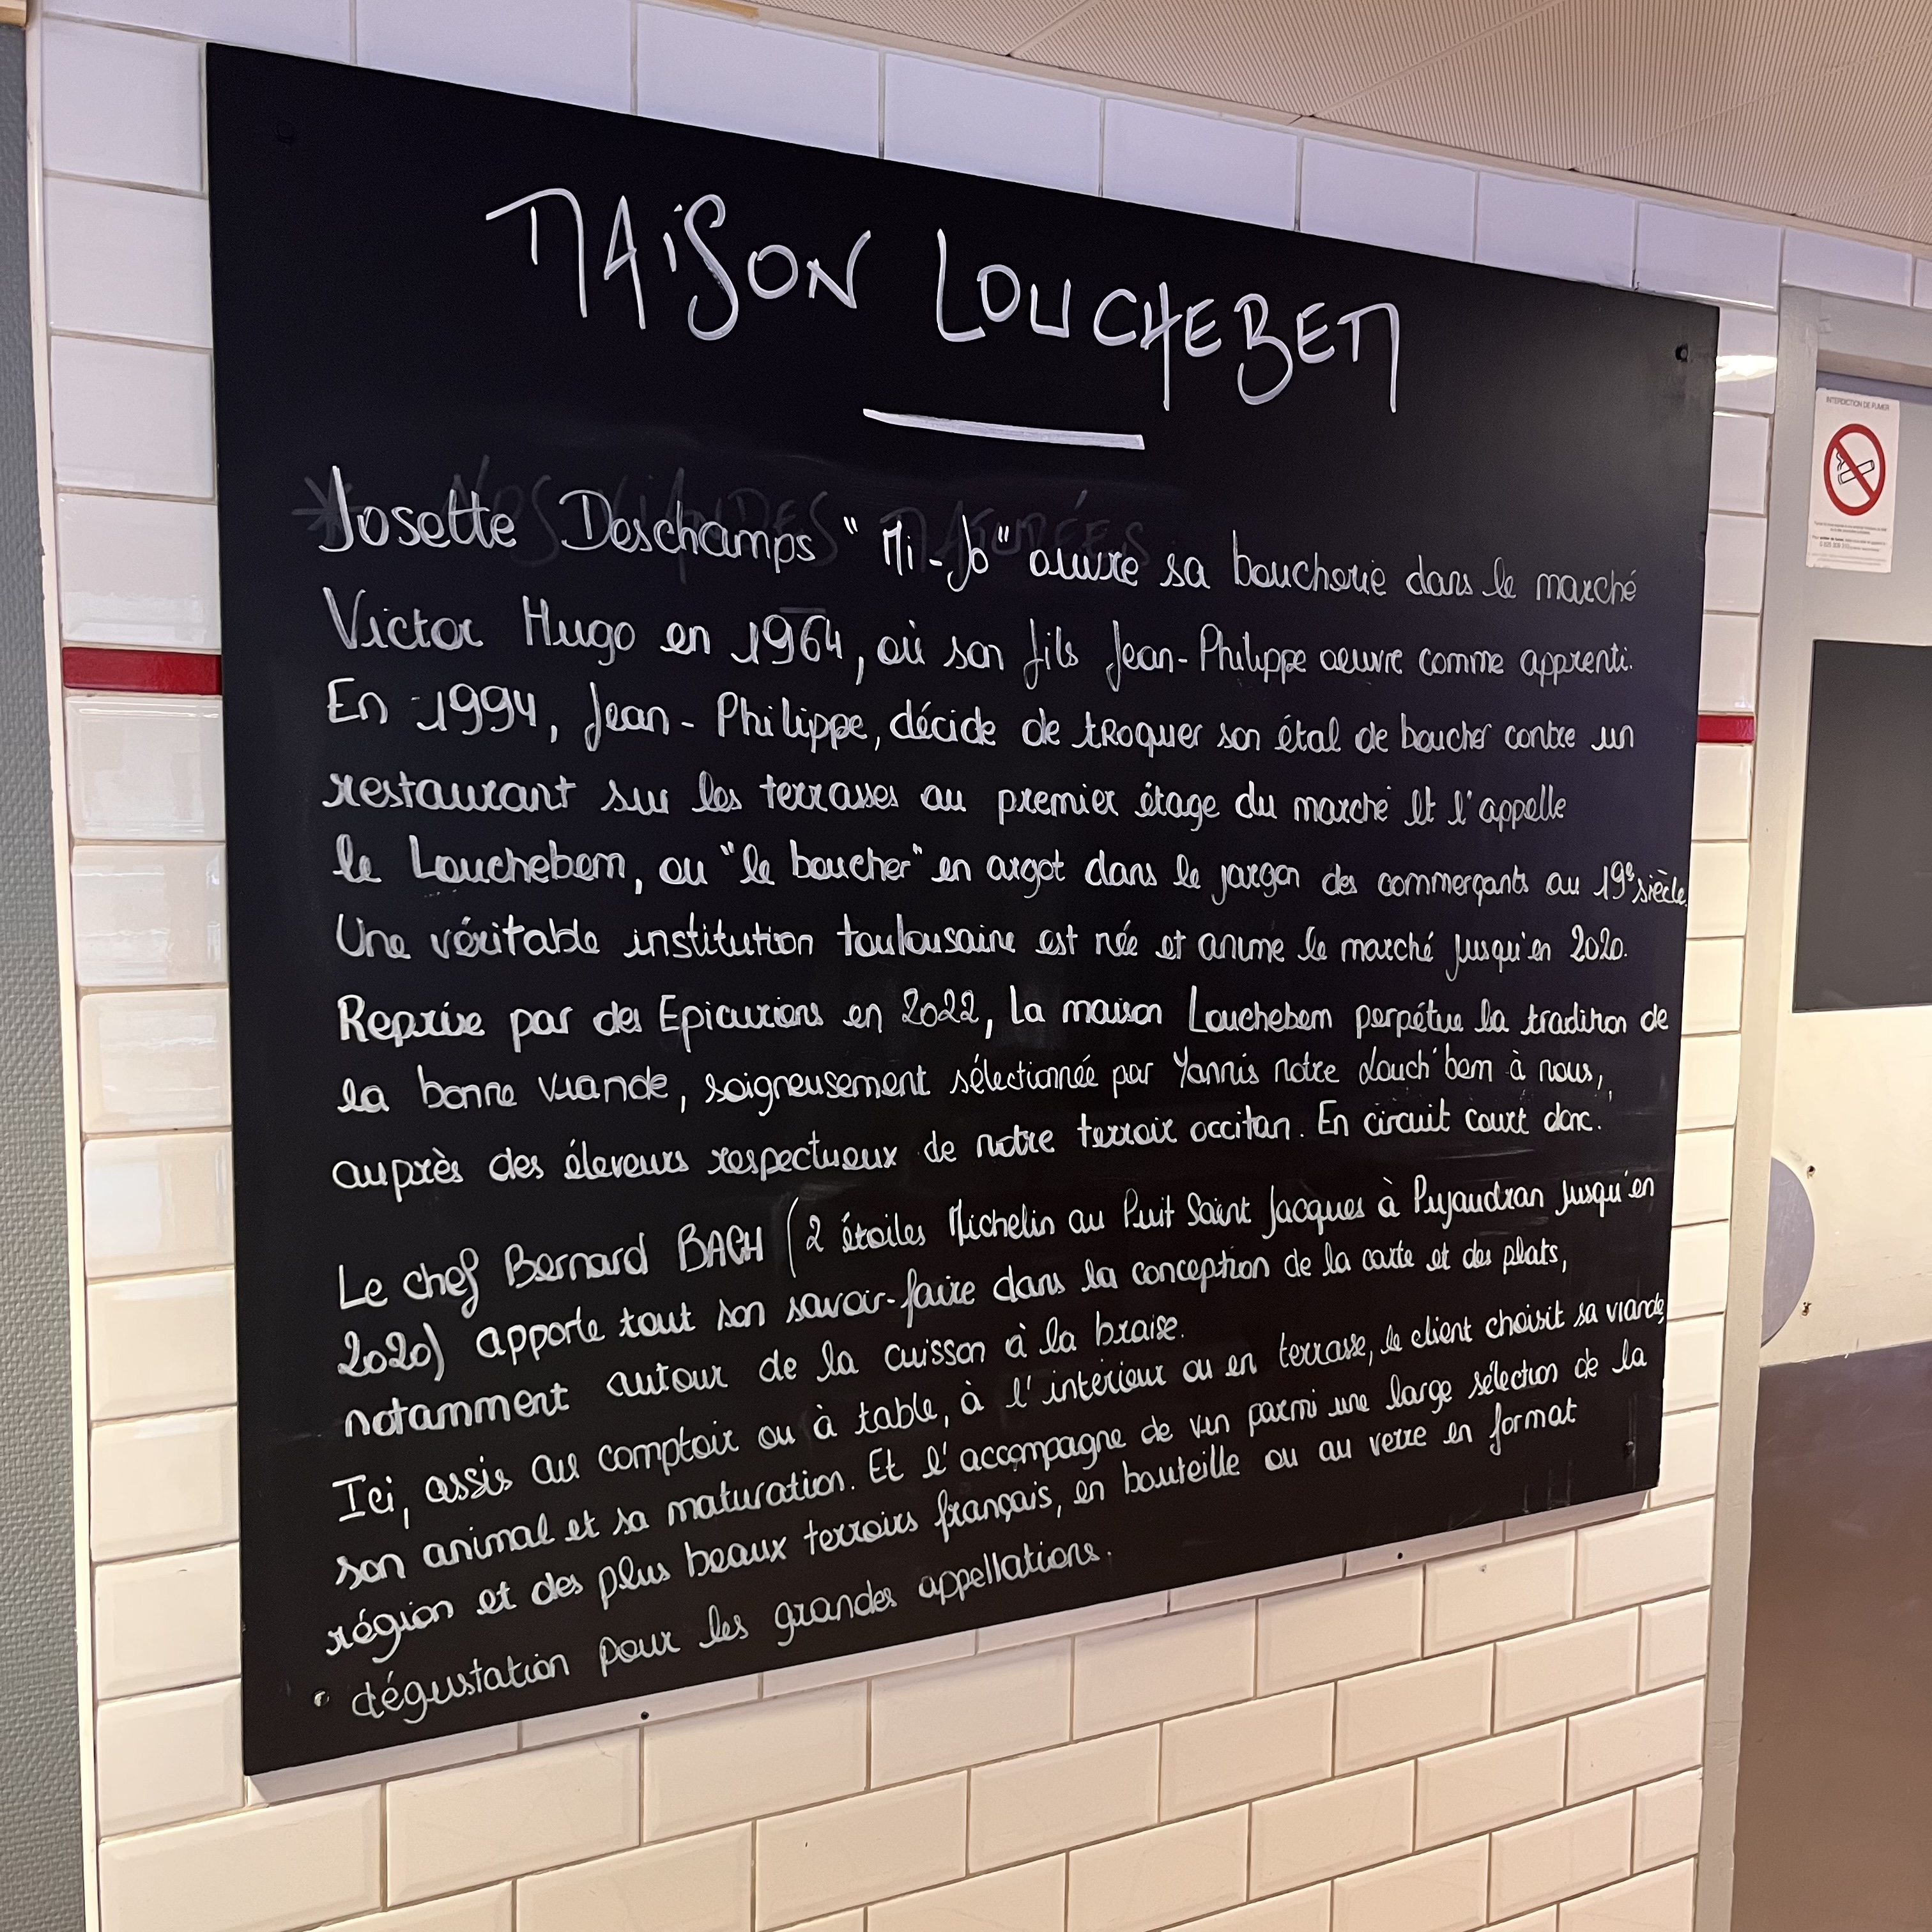 MAISON LOUCHEBEM
Josette Deschamps "Mi-Jo" ouvre sa boucherie dans le marché
Victor Hugo en 1964, où son fils Jean-Philippe oeuvre comme apprenti.
En 1994, Jean-Philippe, décide de troquer son étal de boucher contre un
restaurant sur les terrasses au premier étage du marché et l'appelle
le Louchebem, ou "le boucher" en argot dans le jargon des commerçants au 19e siècle.
Une véritable institution toulousaine est née et anime le marché jusqu'en 2020.
Reprise par des Epicuriens en 2022, la maison Louchebem perpétue la tradition de
la bonne viande, soigneusement sélectionnée par Yannis notre Louch'bem à nous,
auprès des éleveurs respectueux de notre terroir occitan. En circuit court donc.
Le chef Bernard BACH (2 étoiles Michelin au Puit Saint Jacques à Pujaudran jusqu'en
2020) apporte tout son savoir-faire dans la conception de la carte et des plats,
notamment autour de la cuisson à la braise.
Ici, assis au comptoir ou à table, à l'intérieur ou en terrasse, le client choisit sa viande,
son animal et sa maturation. Et l'accompagne de vin parmi une large sélection de la
région et des plus beaux terroirs français, en bouteille ou au verre en format
dégustation pour les grandes appellations.
INTERDICTION DE FUMER